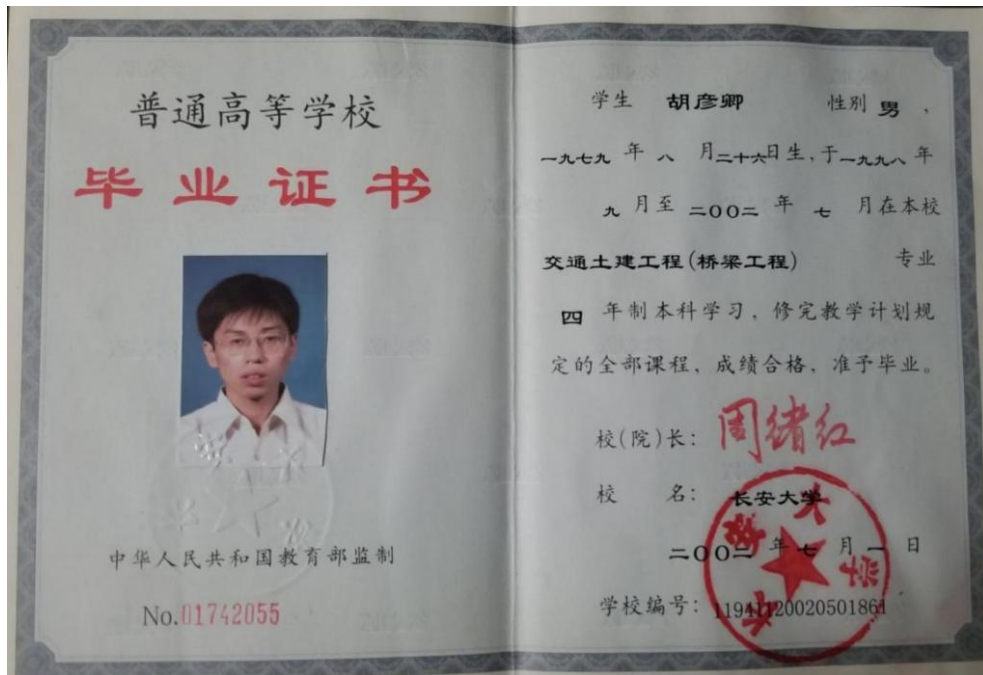 普通高等学校
毕业证书
中华人民共和国教育部监制
No.01742055
学生 胡彦卿 性别 男,
一九七九 年 八 月二十六日生,于一九九八 年
九 月至 二00二 年 七 月在本校
交通土建工程(桥梁工程) 专业
四 年制本科学习,修完教学计划规
定的全部课程,成绩合格,准予毕业。
校(院)长: 周绪红
校 名: 长安大学
二00二 年 七 月 一 日
学校编号: 11941120020501861
长安大学